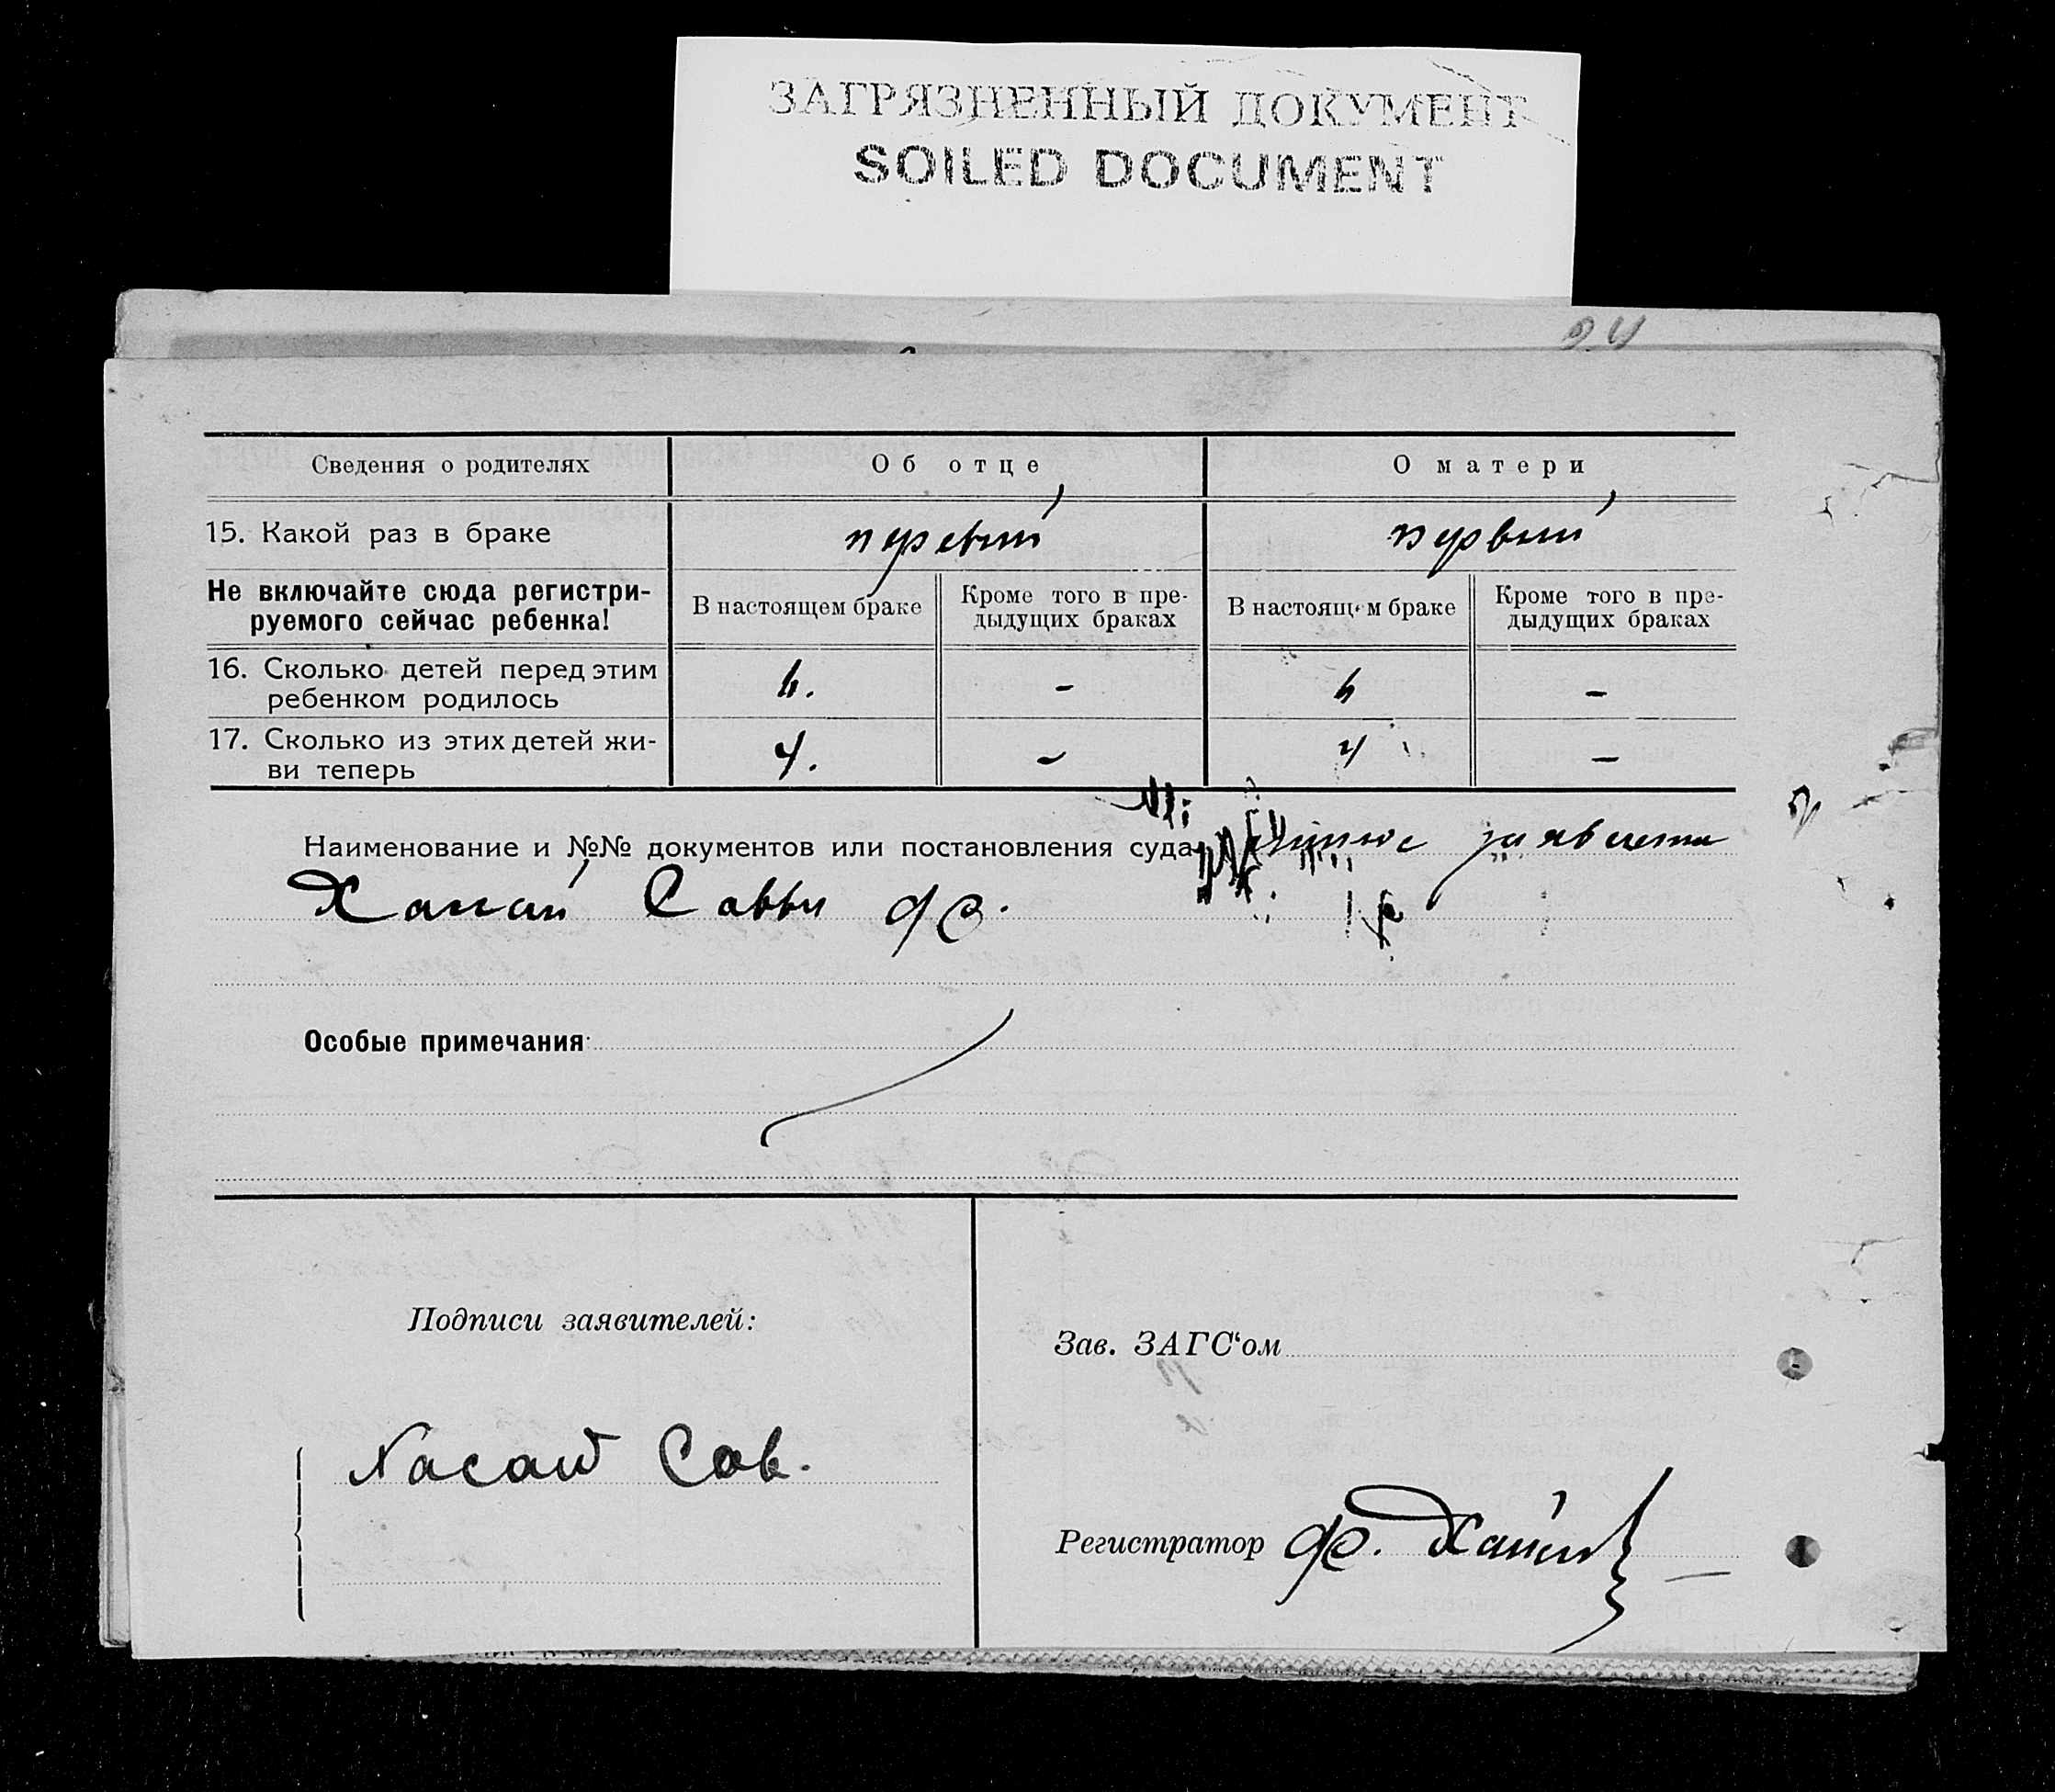 ЗАГРЯЗНЕННЫЙ ДОКУМЕНТ
SOILED DOCUMENT
24
Сведения о родителях Об отце О матери
15. Какой раз в браке первый первый
Не включайте сюда регистри-
руемого сейчас ребенка!
В настоящем браке
Кроме того в пре-
дыдущих браках
В настоящем браке
Кроме того в пре-
дыдущих браках
16. Сколько детей перед этим
ребенком родилось
4. - 4 -
17. Сколько из этих детей жи-
ви теперь
4. - 4 -
Наименование и №№ документов или постановления суда заявления
Особые примечания
Подписи заявителей:
Зав. ЗАГС‘ом
Хасай Сав.
Регистратор